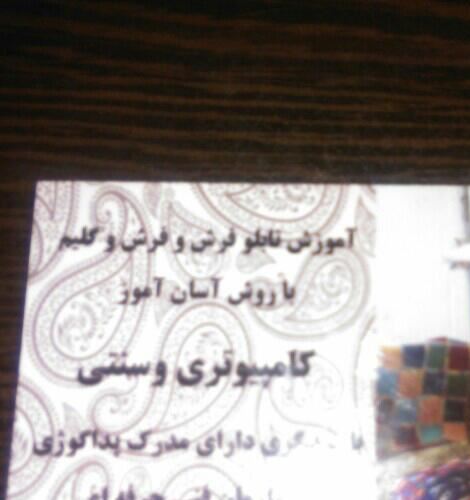 آموزش تابلو فرش و فرش و گلیم
با روش آسان آموز
کامپیوتری وسنتی
دارای مدرک پداگوژی